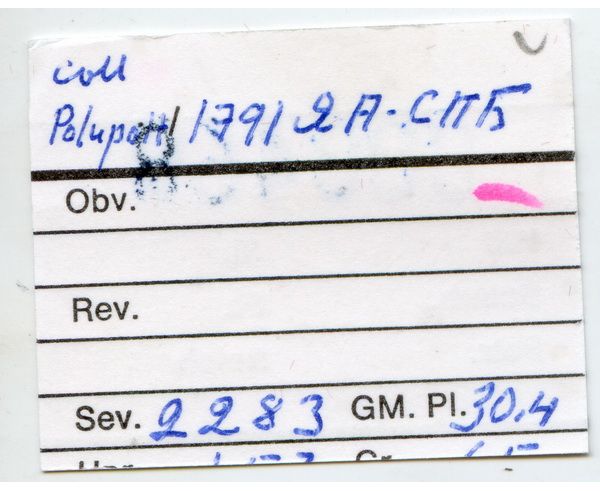 coll
Polupolt 1791 ЯА-СПБ
Obv.
Rev.
Sev. 2283 GM. Pl. 30.4